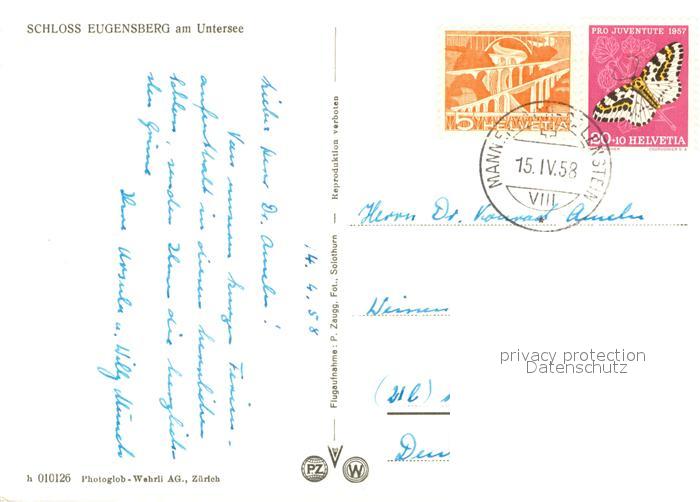 SCHLOSS EUGENSBERG am Untersee
14. 4. 58
Lieber Herr Dr. Ameln!
Von unserem kurzen Ferien-
aufenthalt in diesem herrlichen
Schloss, senden Ihnen die herzlich-
sten Grüsse
Ihre Ursula u. Willy Münch
h 010126 Photoglob-Wehrli AG., Zürich
Flugaufnahme: P. Zaugg, Fot., Solothurn — Reproduktion verboten
PZ
W
5 HELVETIA
PRO JUVENTUTE 1957
20+10 HELVETIA
15.IV.58
VIII
Herrn Dr. Konrad Ameln
privacy protection
Datenschutz